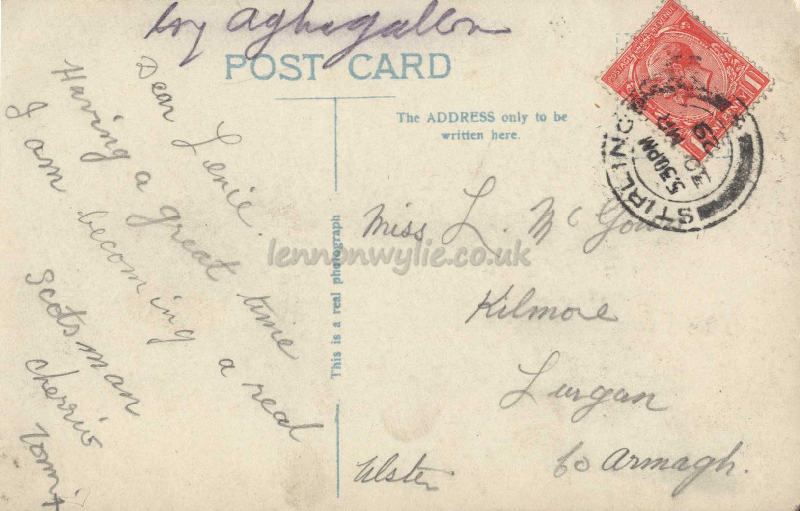 by Aghagallon
POST CARD
Dear Lenie.
Having a great time
I am becoming a real
Scotsman
cherrio
The ADDRESS only to be
written here.
STIRLING
5.30PM
30 MR
Miss L. McGow
Kilmore
Lurgan
Co Armagh.
Ulster
This is a real photograph
lennonwylie.co.uk